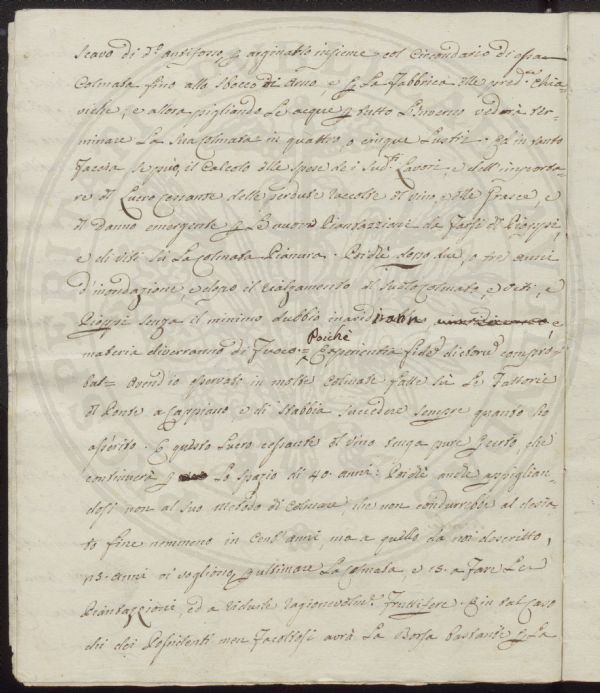 scavo di d.º antifosso, e arginatelo insieme col Circondario di essa
Colmata fino allo sbocco di Arno, e p la Fabbrica delle pred.te Chia-
viche, e allora pigliando le acque p tutto l'Inverno vedrà ter-
minare la sua colmata in quattro, o cinque Lustri. Ed in tanto
faccia se può, il Calcolo delle spese de i sud.ti Lavori, e dell'importa-
re il Lucro cessante delle perdute raccolte di vino, e delle frasce, e
il danno emergente p le nuove Piantazioni da farsi di Pioppi,
e di viti su la colmata Pianura. Poichè dopo due, o tre anni
d'inondazione, e dopo il rialzamento del suolo colmato, e viti, e
Pioppi senza il minimo dubbio inaridiranno e
materia diverranno di fuoco = Poichè Experientia fide dictorum compro-
bat = Avendo io osservato in molte colmate fatte su le Fattorie
di Ponte a Cappiano, e di Stabbia succedere sempre quanto ho
asserito. E questo lucro cessante di vino tenga pure p certo, che
continuerà p lo spazio di 40. anni: Poichè anche appiglian-
dosi non al suo metodo di colmare, che non condurrebbe al desia-
to fine nemmeno in Cent'anni, ma a quello da noi descritto,
25. anni vi vogliono p ultimare la colmata, e 15. a fare le
Piantazioni, ed a ridurle ragionevolm.te fruttifere. E in tal caso
chi dei Possidenti men facoltosi avrà la Borsa bastante p la